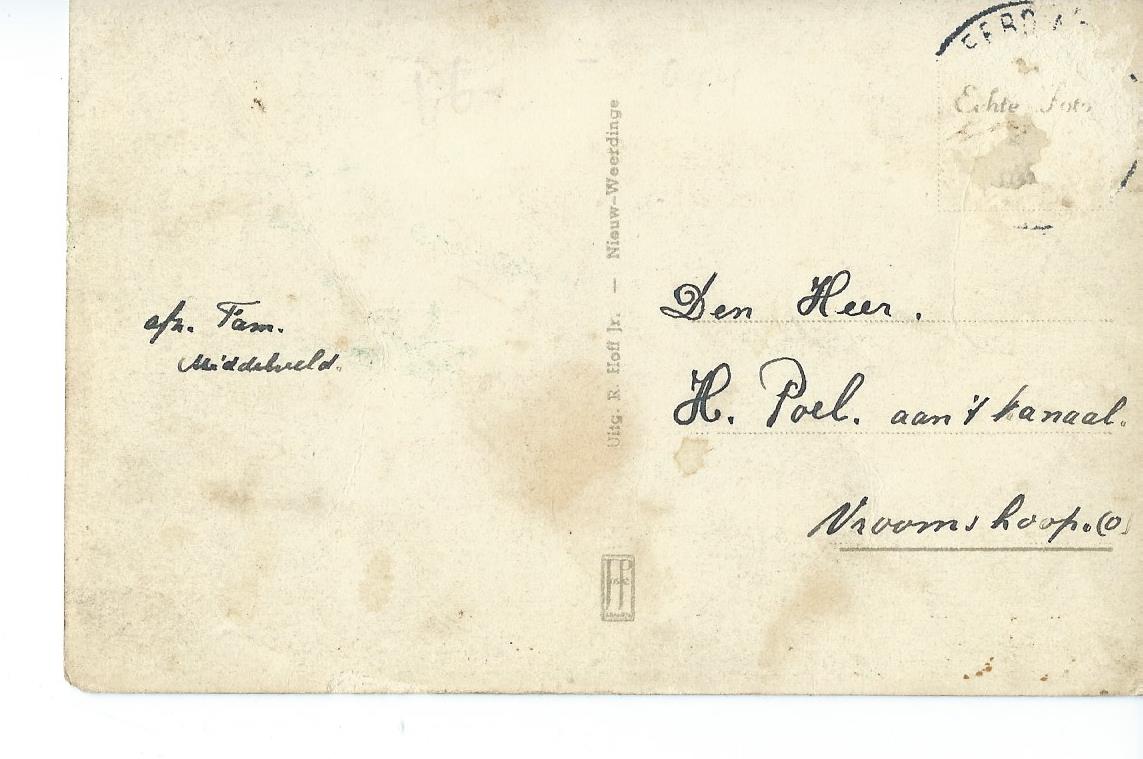 Echte Foto
afz. Fam.
Middelveld.
Uitg. R. Hoff Jr. — Nieuw-Weerdinge
Den Heer.
H. Poel. aan 't kanaal.
Vroomshoop. (O)